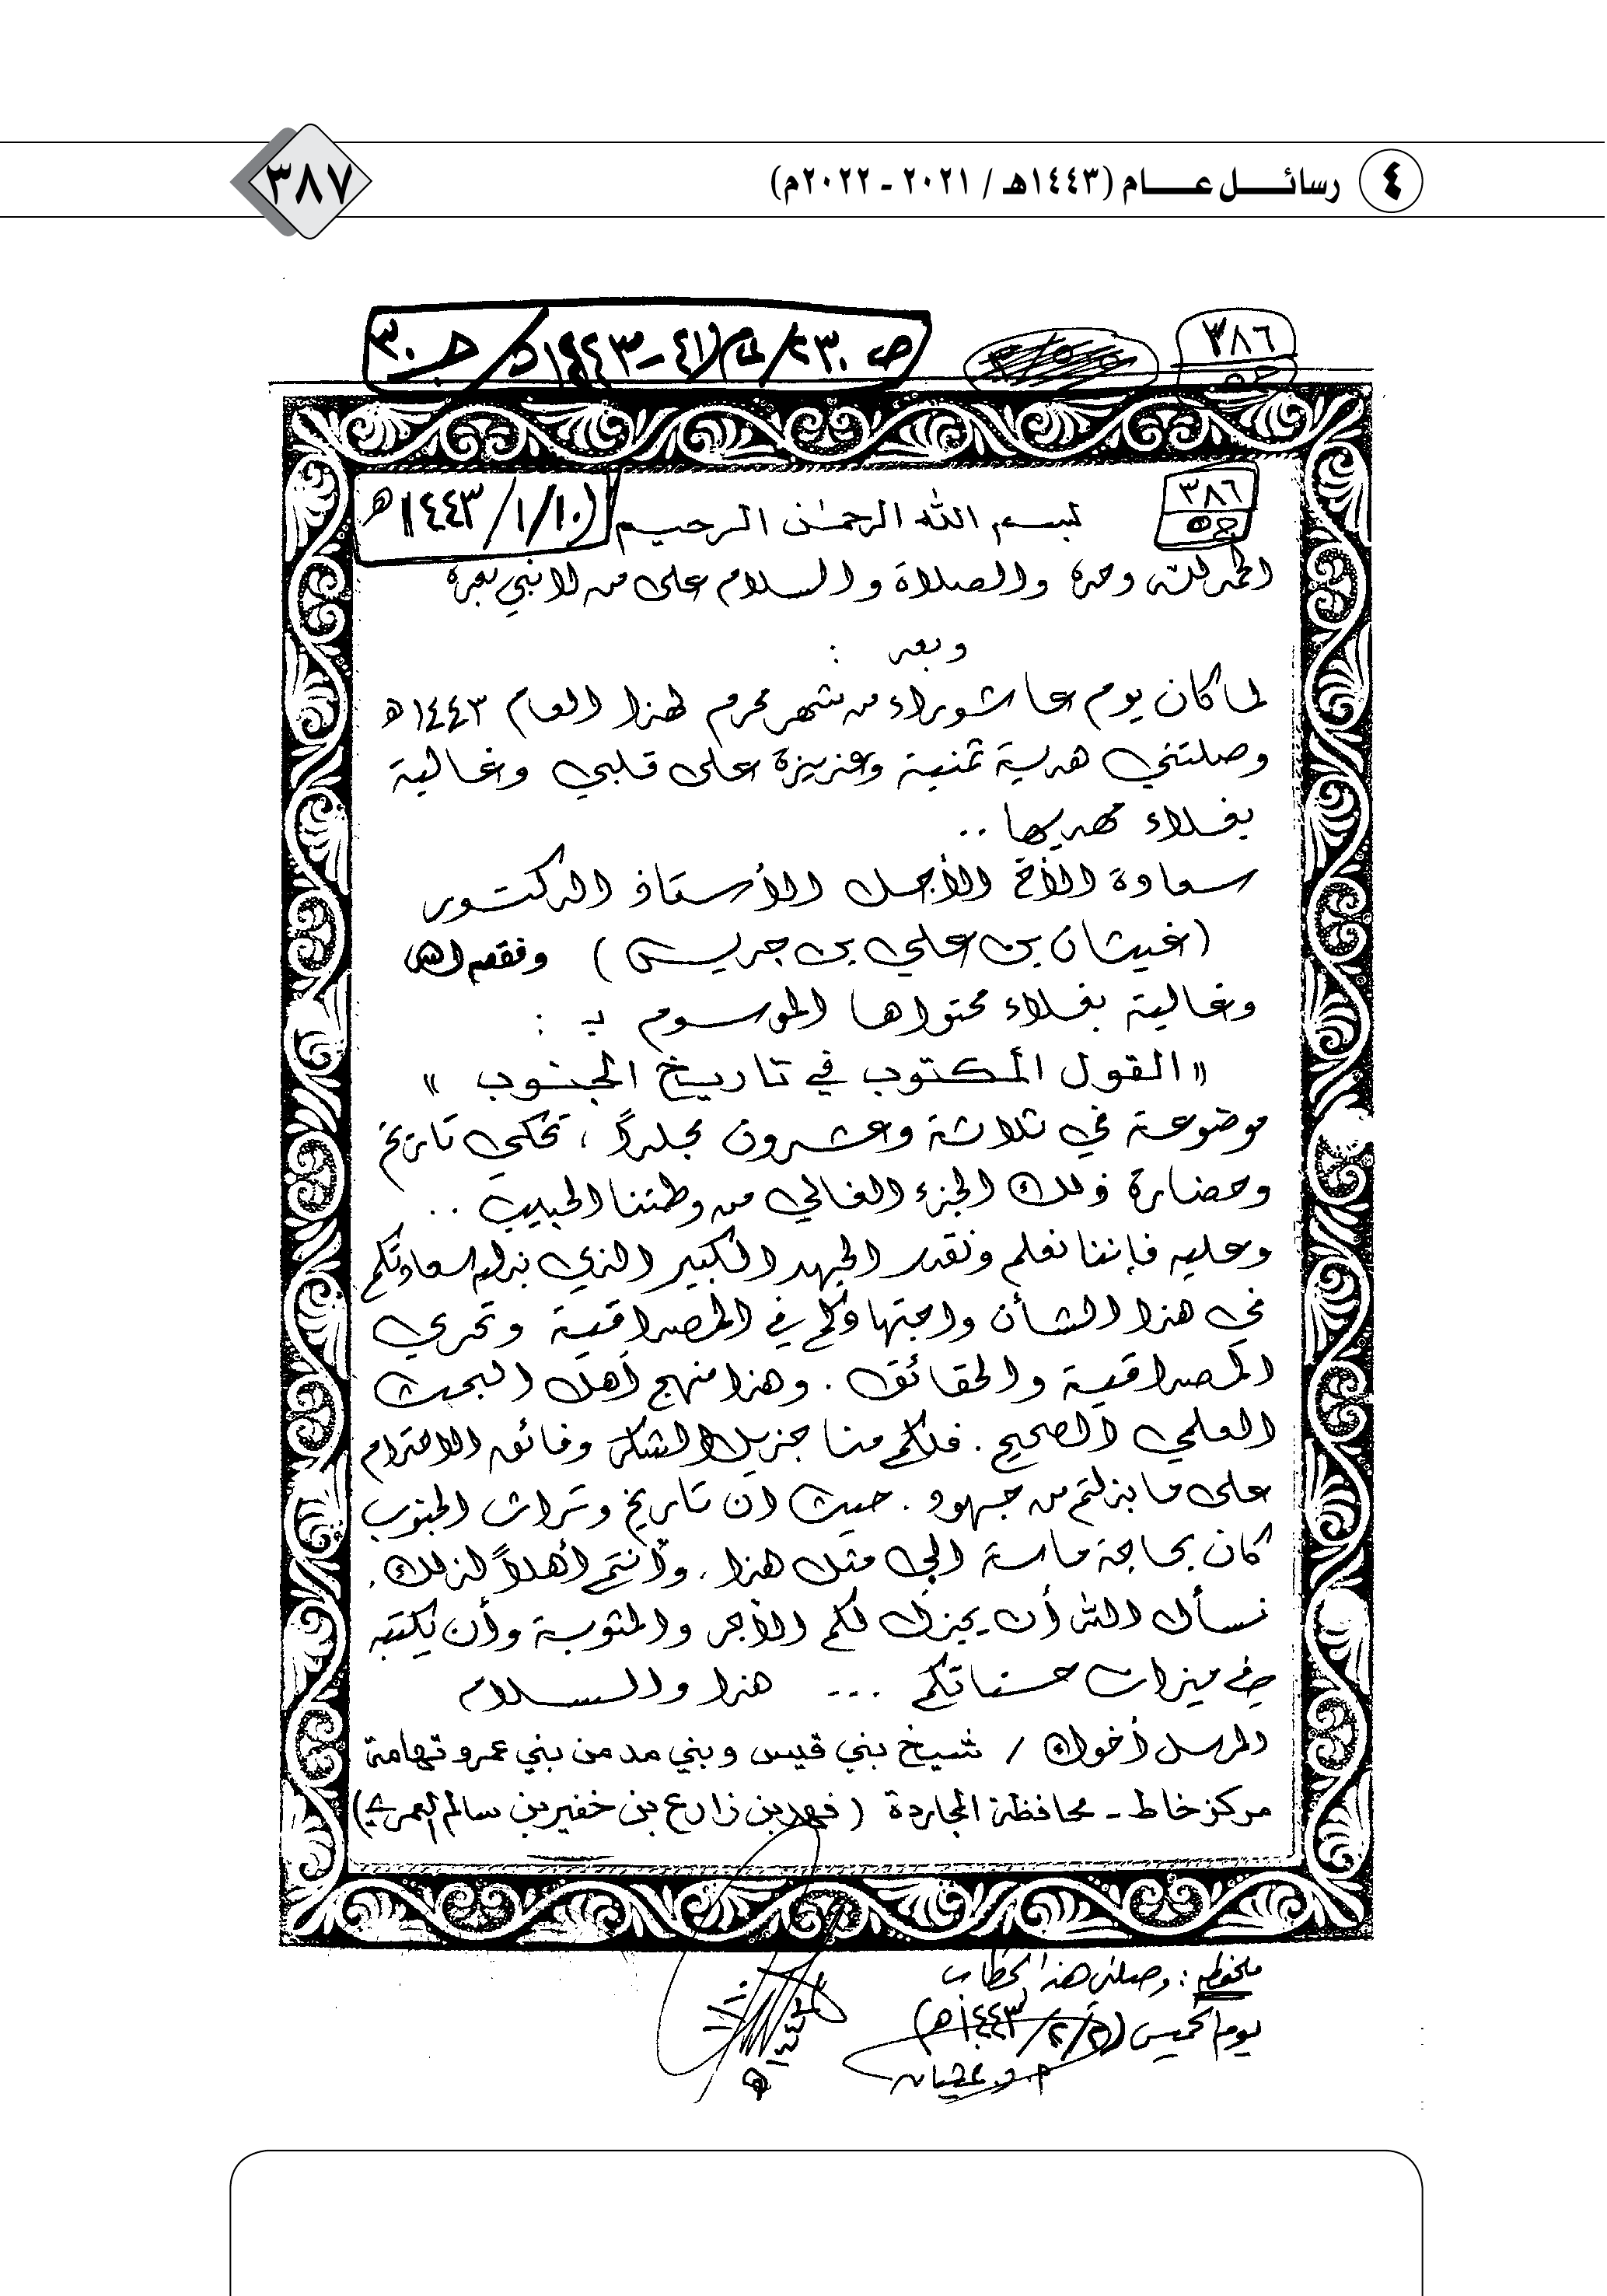 ٤ رسائـــل عـــــام (١٤٤٣هـ / ٢٠٢١ - ٢٠٢٢م)
٣٨٧
٣٨٦
٣٨٦
(١٠/١/١٤٤٣هـ
بسم الله الرحمن الرحيم
الحمد لله وحده والصلاة والسلام على من لا نبي بعده
وبعد :
لما كان يوم عاشوراء من شهر محرم لهذا العام ١٤٤٣هـ
وصلتني هدية ثمينة وعزيزة على قلبي وغالية
بغلاء مهديها ..
سعادة الأخ الأجل الأستاذ الدكتور
(غيثان بن علي بن جريس) وفقه الله
وغالية بغلاء محتواها الموسوم بـ :
« القول المكتوب في تاريخ الجنوب »
موضوعة في ثلاثة وعشرون مجلداً ، تحكي تاريخ
وحضارة ذلك الجزء الغالي من وطننا الحبيب ..
وعليه فإننا نعلم ونقدر الجهد الكبير الذي بذله سعادتكم
في هذا الشأن واجتهادكم في المصداقية وتحري
المصداقية والحقائق . وهذا منهج أهل البحث
العلمي الصحيح . فلكم منا جزيل الشكر وفائق الاحترام
على ما بذلتم من جهود . حيث ان تاريخ وتراث الجنوب
كان بحاجة ماسة الى مثل هذا . وأنتم أهلاً لذلك .
نسأل الله أن يجزل لكم الأجر والمثوبة وأن يكتبه
في ميزان حسناتكم ... هذا والسلام
المرسل أخوك / شيخ بني قيس وبني مد من بني عمرو تهامة
مركز خاط - محافظة المجاردة (فهد بن زارع بن خفير بن سالم العمري)
ملحوظه : وصلني هذا الخطاب
يوم الخميس (٢/٢/١٤٤٣هـ)
غيثان